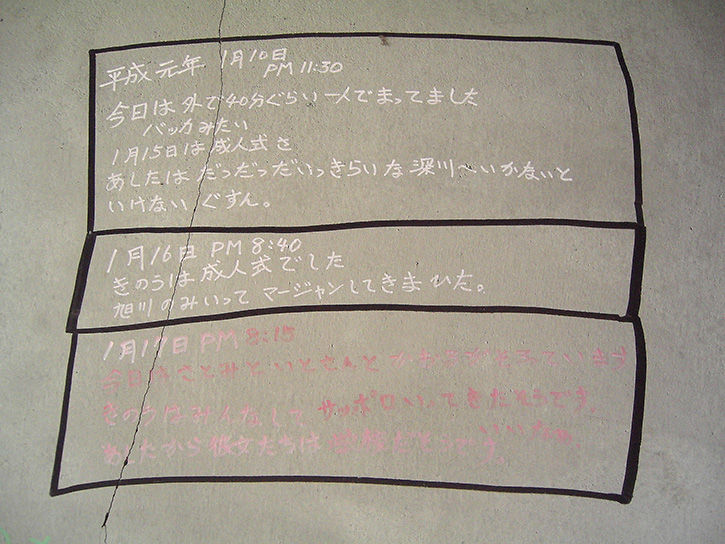 平成元年 1月10日
PM 11:30
今日は外で40分ぐらい一人でまってました
バッカみたい
1月15日は成人式さ
あしたはだっだっだいっきらいな深川へいかないと
いけない ぐすん。
1月16日 PM 8:40
きのうは成人式でした
旭川のみいって マージャンしてきまひた。
1月17日 PM 8:15
今日はさとみといとさんと
きのうはみんなして サッポロいってきたそうです。
いいなぁ。
あしたから彼女たちは